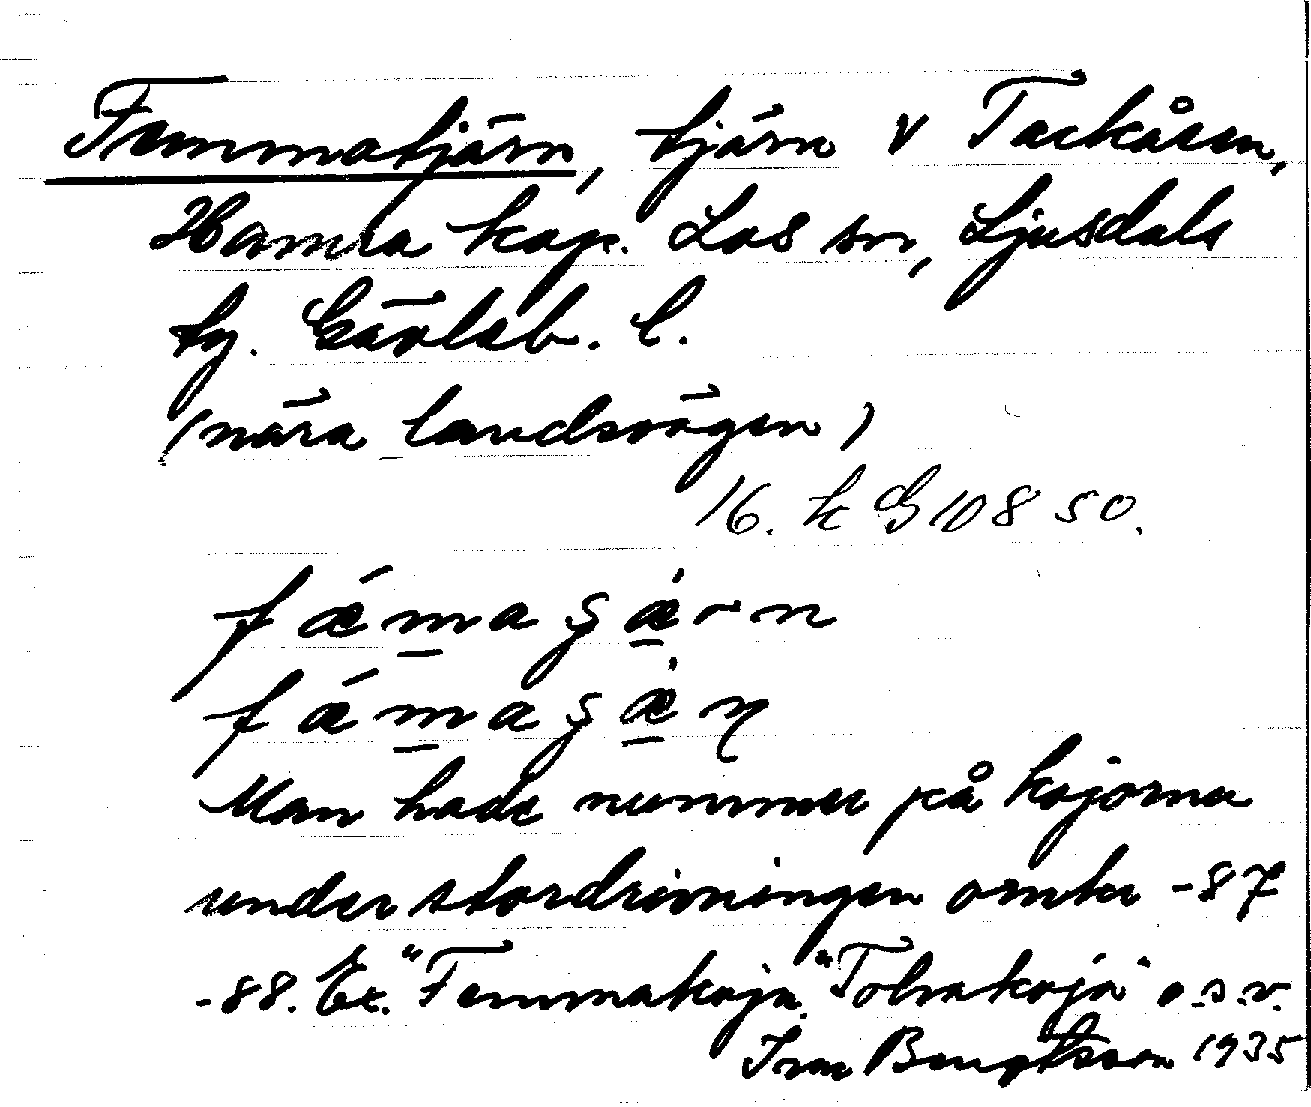 Femmatjärn, tjärn v Tackåsen,
Hamra kap. Los sn, Ljusdals
tg. Gävleb. l.
(nära landsvägen)
16. k G 10 8 50.
fǽmaʂæ̇rn
fǽmaʂæ̇ɳ
Man hade nummer på kojorna
under stordrivningen omkr -87
-88. Ex. "Femmakoja" "Tolvakoja" o.s.v.
Ivar Bengtsson 1935